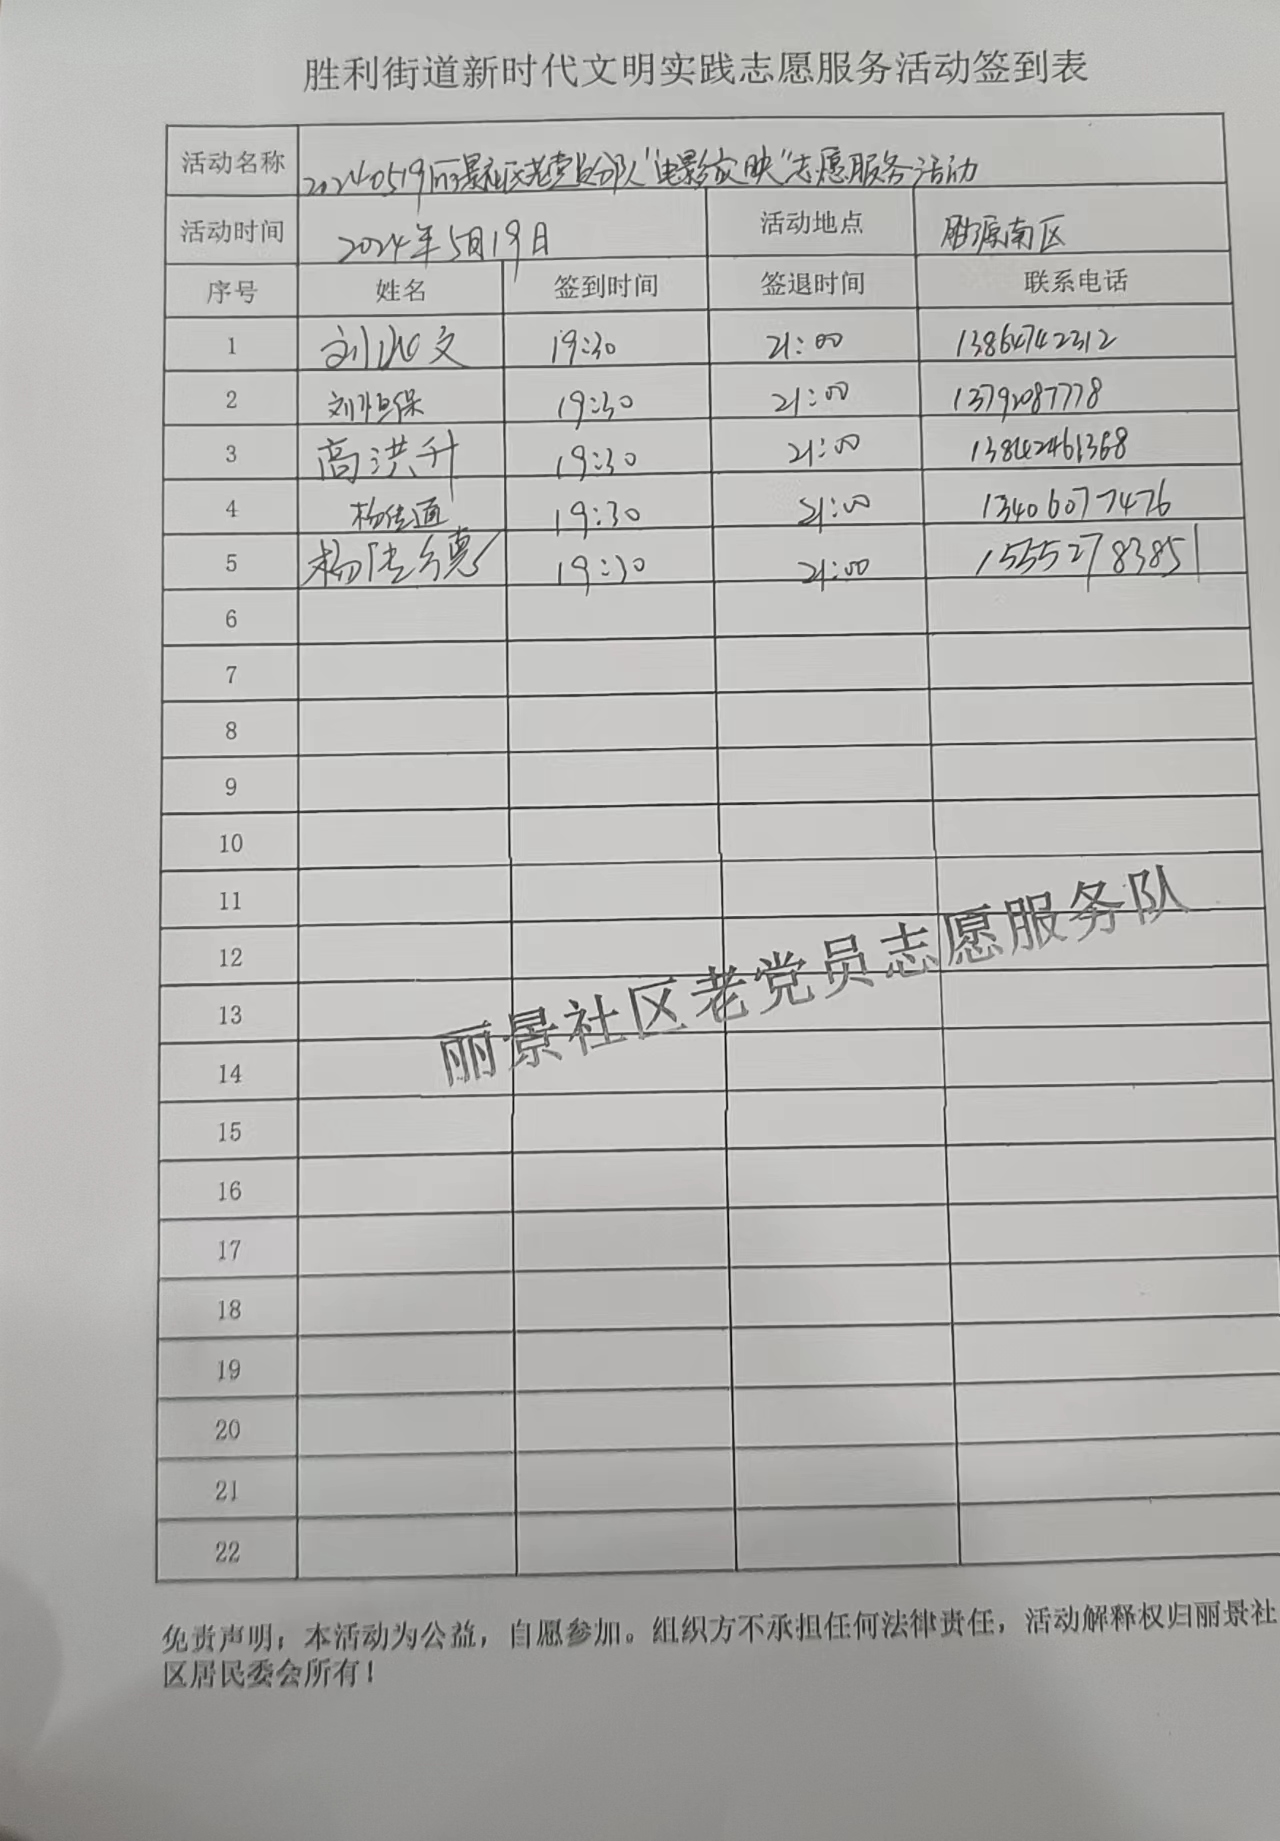 胜利街道新时代文明实践志愿服务活动签到表
活动名称 20240519丽景社区老党员分队“电影放映”志愿服务活动
活动时间 2024年5月19日 活动地点 胜源南区
序号 姓名 签到时间 签退时间 联系电话
1 刘 文 19:30 21:00 13864742312
2 刘恒保 19:30 21:00 13792087778
3 高洪升 19:30 21:00
4 杨传通 19:30 21:00 13406077476
5 杨 德 19:30 21:00 15552783851
6
7
8
9
10
11
12
13
14
15
16
17
18
19
20
21
22
丽景社区老党员志愿服务队
免责声明：本活动为公益，自愿参加。组织方不承担任何法律责任，活动解释权归丽景社
区居民委会所有！